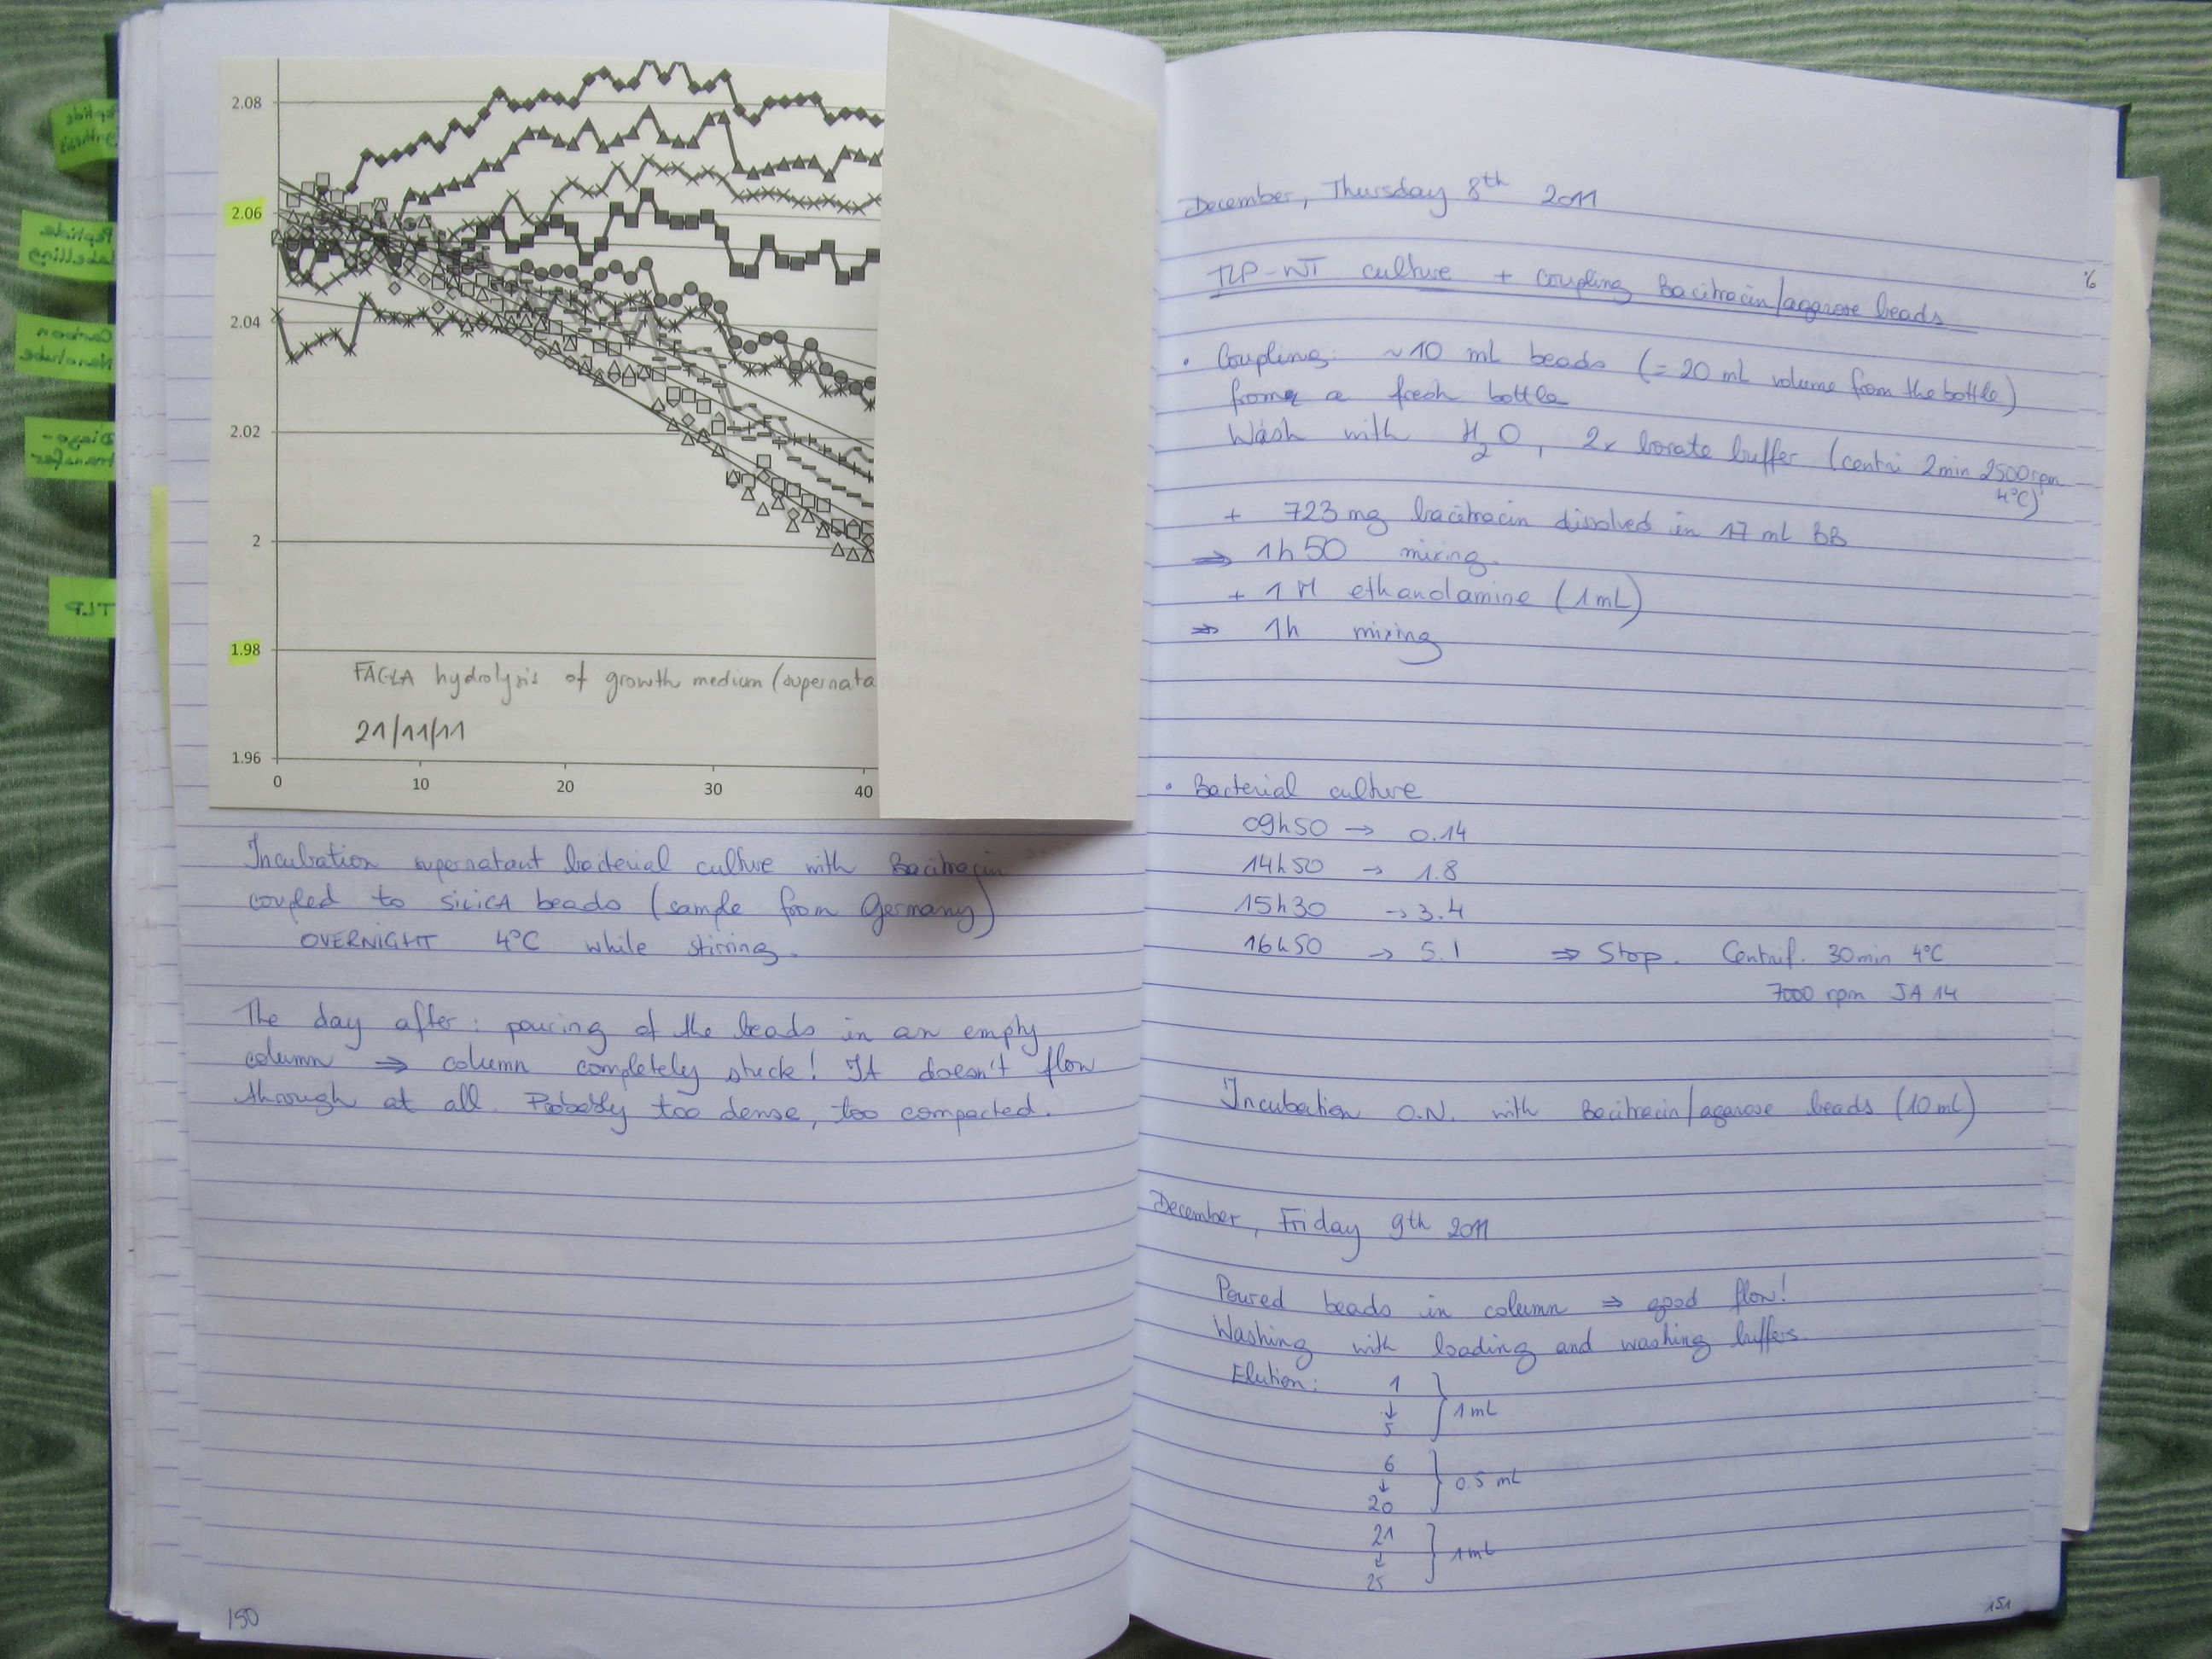 2.08
2.06
2.04
2.02
2
1.98
1.96
0 10 20 30 40
FAGLA hydrolysis of growth medium (supernata
21/11/11
Incubation supernatant bacterial culture with Bacitracin
coupled to SILICA beads (sample from Germany)
OVERNIGHT 4°C while stirring.
The day after: pouring of the beads in an empty
column ⇒ column completely stuck! It doesn't flow
through at all. Probably too dense, too compacted.
150
Peptide
Synthesis
Peptide
labelling
Carbon
Nanotube
Diazo-
transfer
TLP
December, Thursday 8th 2011
TLP-WT culture + coupling Bacitracin/agarose beads
• Coupling: ~10 mL beads (= 20 mL volume from the bottle)
from a fresh bottle
Wash with H2O, 2x borate buffer (centri 2min 2500rpm
4°C)
+ 723 mg bacitracin dissolved in 17 mL BB
⇒ 1h50 mixing.
+ 1 M ethanolamine (1mL)
⇒ 1h mixing
• Bacterial culture
09h50 → 0.14
14h50 → 1.8
15h30 → 3.4
16h50 → 5.1 ⇒ Stop. Centrif. 30min 4°C
7000 rpm JA 14
Incubation O.N. with Bacitracin/agarose beads (10mL)
December, Friday 9th 2011
Poured beads in column ⇒ good flow!
Washing with loading and washing buffers.
Elution: 1
↓ } 1 mL
5
6
↓ } 0.5 mL
20
21
↓ } 1 mL
25
151